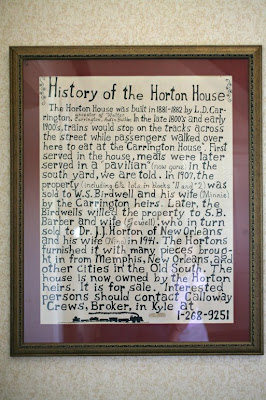 History of the Horton House
The Horton House was built in 1881-1882 by L.D. Car-
rington, ancestor of Walter
Carrington, Austin Builder. In the late 1800's and early
1900's, trains would stop on the tracks across
the street while passengers walked over
here to eat at the Carrington House". First
served in the house, meals were later
served in a "pavilian" (now gone) in the
south yard, we are told. In 1907, the
property (including 6½ lots in blocks "11 and "2) was
sold to W.S. Birdwell and his wife (Minnie)
by the Carrington heirs. Later, the
Birdwells willed the property to S.B.
Barber and wife (Sidwell), who in turn
sold to Dr. J.J. Horton of New Orleans
and his wife (Nina) in 1941. The Hortons
furnished it with many pieces broug-
ht in from Memphis, New Orleans, and
other cities in the Old South. The
house is now owned by the Horton
heirs. It is for sale. Interested
persons should contact Calloway
Crews, Broker, in Kyle at
1-268-9251